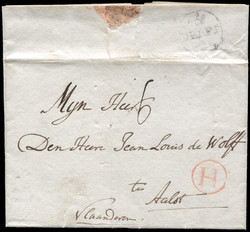 Myn Heer
Den Heere Jean Louis de Wolff
te
Aalst
Vlaanderen
H